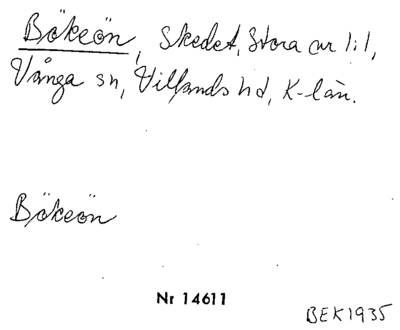 Bökeön, Skedet, Stora nr 1:1,
Vånga sn, Villands hd, K-län.
Bökeön
Nr 14611
BEK1935